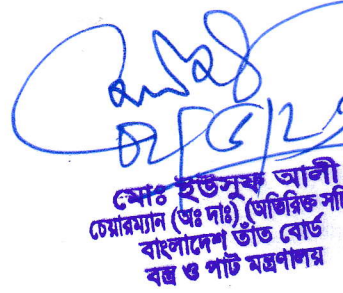 মোঃ ইউসুফ আলী
চেয়ারম্যান (অঃ দাঃ) (অতিরিক্ত
বাংলাদেশ তাঁত বোর্ড
বস্ত্র ও পাট মন্ত্রণালয়